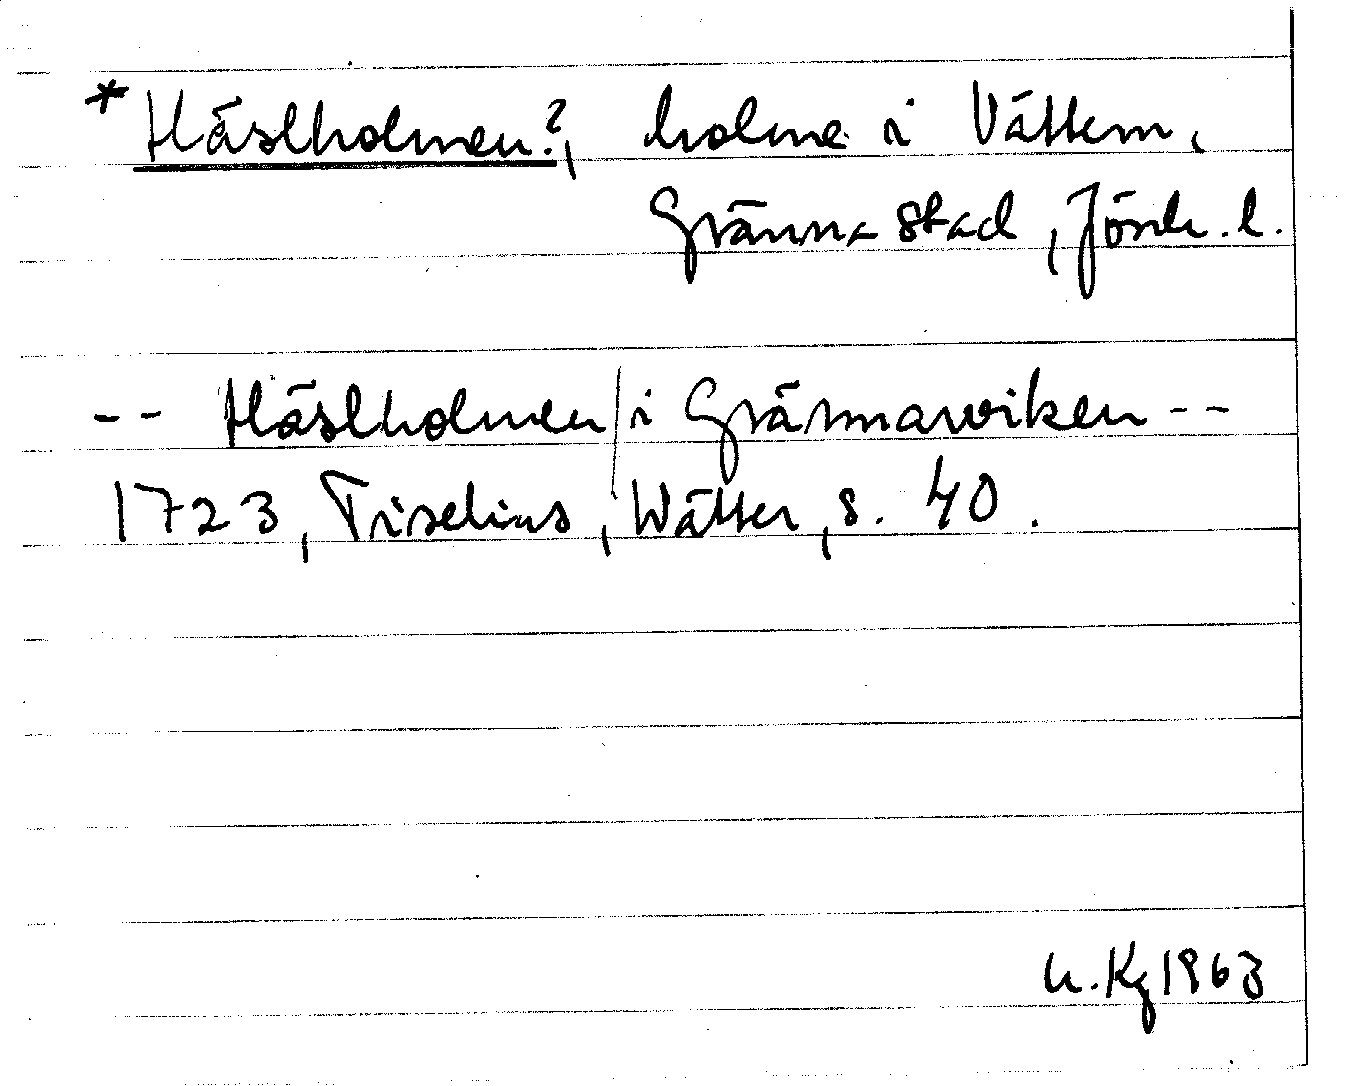 *Hästholmen?, holme i Vättern,
Gränna stad, Jönk. l.
-- Hästholmen/i Gränna wiken --
1723, Tiselius, Wätter, s. 40.
U. Kg 1963